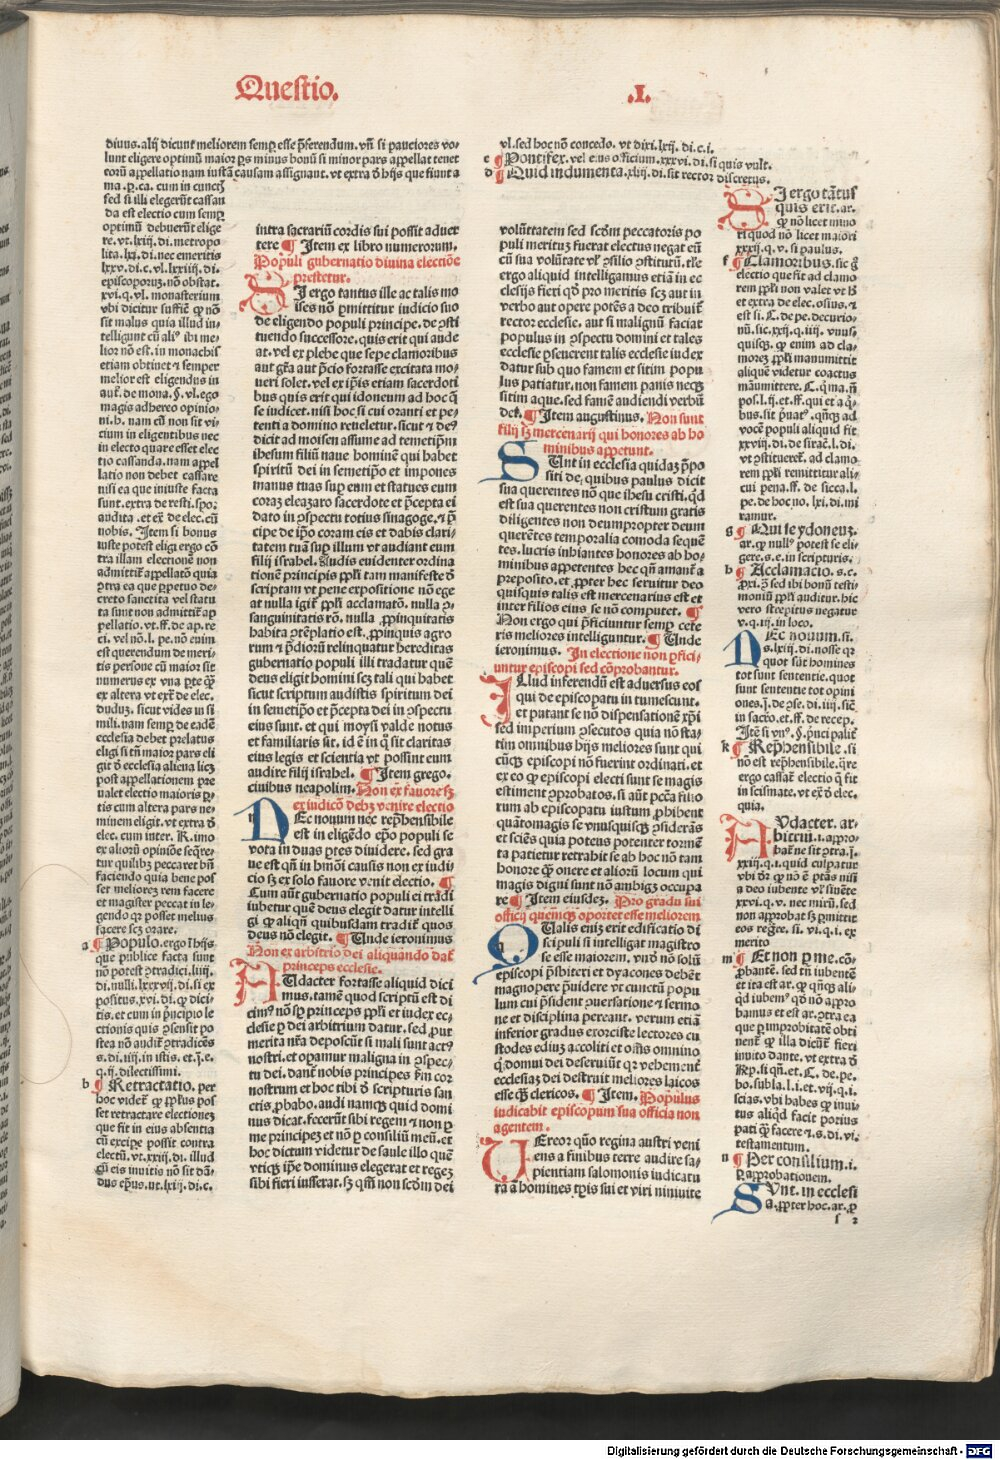 Questio.
.I.
diuus. alij dicunt meliorem semꝑ esse p̄ferendum. vn̄ si pauciores vo-
lunt eligere optimū maior ꝑs minus bonū si minor pars appellat tenet
eorū appellatio nam iustā causam assignant. vt extra ō hijs que fiunt a
ma. ꝑ. ca. cum in cunctꝭ
sed si illi elegerūt cassan
da est electio cum semꝑ
optimū debuerūt elige
re. vt. lxiij. di. metropo
lita. lxi. di. nec emeritis
lxxv. di. c. vl. lxxiiij. di.
episcoporuꝫ. nō obstat.
xvi. q. vl. monasterium
vbi dicitur
sit malus quia illud in-
telligunt cū
lior nō est. in monachis
etiam obtinet ꝙ semper
melior est eligendus in
magis adhereo opinio-
ni. h. nam cū non sit vi-
cium in eligentibus nec
in electo quare esset elec
tio cassanda. nam appel
latio non debet cassare
nisi ea que iniuste facta
sunt. extra de resti. spo.
audita. et ex̄ de elec. cū
nobis. Item si bonus
iuste potest eligi ergo cō
tra illam electionē non
admittit̄ appellatō quia
creto sancita vel statu
ta sunt non admittit̄ ap
pellatio. vt. ff. de ap. re
ci. vel nō. l. pe. nō enim
est querendum de meri-
tis persone cū maior sit
numerus ex vna ꝑte ꝙ̄
ex altera vt ext̄ de elec.
duduꝫ. sicut vides in si
mili. nam semꝑ de eadē
ecclesia debet prelatus
eligi si tn̄ maior pars eli
git ō ecclesia aliena licꝫ
post appellationem pre
ualet electio maioris ꝑ-
tis cum altera pars ne-
minem eligit. vt extra ō
elec. cum inter. R. imo
ex aliorū opinōe seq̄re-
tur quilibꝫ peccaret bn̄
faciendo quia bene pos
set melioreꝫ rem facere
et magister peccat in le-
gendo qr posset melius
facere scꝫ orare.
a ¶ Populo. ergo
que publice facta sunt
nō potest ꝯtradici. liiij.
di. nulli. lxxxvij. di. si ex
positus. xvi. di. ꝙ dici-
tis. et cum in p̄ncipio le
ctionis quis ꝯsensit po
stea nō audit̄ ꝯtradicēs
s. di. iiij. in istis. et. j. e.
q. ij. dilectissimi.
b ¶ Retractatio. per
hoc videt̄ ꝙ ꝑplus pos
set retractare electioneꝫ
que fit in eius absentia
cū excipe possit contra
electū. vt. xxiij. di. illud
cū eis inuitis nō sit dā-
dus ep̄us. vt. lxiij. di. c.
intra sacrariū cordis sui possit aduer
tere ¶ Item ex libro numerorum.
Populi gubernatio diuina electiōe
prestetur.
SI ergo tantus ille ac talis mo
ises nō ꝑmittitur iudicio suo
de eligendo populi principe. de ꝯsti
tuendo successore. quis erit qui aude
at. vel ex plebe que sepe clamoribus
aut gr̄a aut p̄cio fortasse excitata mo-
ueri solet. vel ex ip̄is etiam sacerdoti
bus quis erit qui idoneum ad hoc ꝙ̄
se iudicet. nisi hoc si cui oranti et pe-
tenti a domino reueletur. sicut ⁊ deꝰ
dicit ad moisen assume ad temetip̄m
ihesum filiū naue hominē qui habet
spiritū dei in semetip̄o et impones
manus tuas suꝑ eum et statues eum
coraꝫ eleazaro sacerdote et p̄cepta ei
dato in ꝯspectu totius sinagoge. ⁊ p̄
cipe de ip̄o coram eis et dabis clari-
tatem tuā suꝑ illum vt audiant eum
filij israhel. Audis euidenter ordina
tionē principis ꝑpli tam manifeste ō
scriptam vt pene expositione nō ege
at nulla igit̄ ꝑpli acclamatō. nulla ꝯ-
sanguinitatis rō. nulla ꝓpinquitatis
habita ꝯtēplatio est. ꝓpinquis agro
rum ⁊ p̄diorū relinquatur hereditas
gubernatio populi illi tradatur quē
deus eligit homini scꝫ tali qui habet
sicut scriptum audistis spiritum dei
in semetip̄o et p̄cepta dei in ꝯspectu
eius sunt. et qui moysi valde notus
et familiaris sit. id ē in q̄ sit claritas
eius legis et scientia vt possint eum
audire filij israhel. ¶ Item grego.
ciuibus neapolim. Non ex fauore sꝫ
ex iudicō debꝫ venire electio
DEc nouum nec rep̄hensibile
est in eligēdo ep̄o populi se
vota in duas ꝑtes diuidere. sed gra
ue est qn̄ in hmōi causis non ex iudi
cio sꝫ ex solo fauore venit electio. ¶
Cum aūt gubernatio populi ei tradi
iubetur quē deus elegit datur intelli
gi ꝙ aliqn̄ quibusdam tradit̄ quos
deus nō elegit. ¶ Unde ieronimus
Non ex arbitrio dei aliquando dat̄
princeps ecclesie.
AUdacter fortasse aliquid dici
mus. tamē quod scriptū est di
cimꝰ nō sꝑ princeps ꝑpli et iudex ec-
clesie ꝑ dei arbitrium datur. sed ꝓut
merita nr̄a deposcūt si mali sunt actꝰ
nostri. et oꝑamur maligna in ꝯspec-
tu dei. dant̄ nobis principes
nostrum et hoc tibi ō scripturis san
ctis ꝓbabo. audi namqꝫ quid domi
nus dicat. fecerūt sibi regem ⁊ non ꝑ
me principeꝫ et nō ꝑ consiliū meū. et
hoc dictum videtur de saule illo quē
vtiqꝫ ip̄e dominus elegerat et regeꝫ
sibi fieri iusserat. sꝫ qm̄ non scdm dei
vl. sed hoc nō concedo. vt dixi. lxij. di. c. i.
c ¶ Pontifex. vel eius officium. xxxvi. di. si quis vult.
d ¶ Quid indumenta. xliij. di. sit rector discretus.
volūtatem sed scdm peccatoris po
puli meritus fuerat electus negat eū
cū sua volūtate vl' ꝯsilio ꝯstiturū. tl'e
ergo aliquid intelligamus etiā in ec
clesijs fieri qd̄ pro meritis scꝫ aut in
verbo aut opere potēs a deo tribuit̄
rector ecclesie. aut si malignū faciat
populus in ꝯspectu domini et tales
ecclesie ꝑseuerent talis ecclesie iudex
datur sub quo famem et sitim popu
lus patiatur. non famem panis necqꝫ
sitim aque. sed famē audiendi verbū
dei. ¶ Item augustinus. Non sunt
filij sꝫ mercenarij qui honores ab ho
minibus appetunt.
SUnt in ecclesia quidaꝫ p̄po
siti de. quibus paulus dicit
sua querentes nō que ihesu cristi. qd̄
est sua querentes non cristum gratis
diligentes non deum propter deum
querētes temporalia comoda sequē
tes. lucris inhiantes honores ab ho-
minibus appetentes hec qn̄ amant̄ a
preposito. et ꝓpter hec seruitur deo
quisquis talis est mercenarius est et
inter filios eius se nō computet. ¶
Non ergo qui p̄ficiuntur semꝑ cete
ris meliores intelliguntur. ¶ Unde
ieronimus. In electione non ꝑfici-
untur episcopi sed cōprobantur.
ILlud inferendū est aduersus eos
qui de episcopatu intumescunt.
et putant se nō dispensationē xp̄i
sed imperium ꝯsecutos quia nō sta-
tim omnibus hijs meliores sunt qui
cūqꝫ episcopi nō fuerint ordinati. et
ex eo ꝙ episcopi electi sunt se magis
estiment ꝯprobatos. si aūt pctā filio
rum ab episcopatu iustum ꝓhibent
quātomagis se vnusquisqꝫ ꝯsiderās
et sciēs quia potens potenter tormē
ta patietur retrahit se ab hoc nō tam
honore ꝙ̄ onere et aliorū locum qui
magis digni sunt nō ambigꝫ occupa
re ¶ Item eiusdeꝫ. Pro gradu sui
officij quemqꝫ oportet esse meliorem
QUalis enim erit edificatio di
scipuli si intelligat magistro
se esse maiorem. vnd̄ nō solū
episcopi p̄sbiteri et dyacones debēt
magnopere p̄uidere vt cunctū popu
lum cui p̄sident ꝯuersatione ⁊ sermo
ne et disciplina preeant. verum etiā
inferior gradus exorciste lectores cu
stodes ediuꝫ accoliti et om̄s omnino
q̄ domui dei deseruiūt qr vehement̄
ecclesiaꝫ dei destruit meliores laicos
esse ꝙ̄ clericos. ¶ Item. Populus
iudicabit episcopum sua officia non
agentem.
UEreor qn̄o regina austri veni
ens a finibus terre audire sa-
pientiam salomonis iudicatu
ra ā homines tꝑis sui et viri niniuite
SI ergo tātus
quis erit. ar.
ꝙ nō licet mino
ri quod nō licet maiori
xxxij. q. v. si paulus.
f ¶ Clamoribus. sic ꝙ
electio que fit ad clamo
rem ꝑpli non valet vt h̄
et extra de elec. osius. ⁊
est si. C. de pe. decurio-
nū. sic. xxij. q. iij. vnus
quisqꝫ. ꝙ enim ad cla-
moreꝫ ꝑpli manumittit
aliquē videtur coactus
māumittere. C. q̄ ma. n̄
pos. l. ij. et. ff. qui et a q̄-
bus. sit p̄uatꝰ. qn̄qꝫ ad
vocē populi aliquid fit
xxviij. di. de sirac. l. di.
vt ꝯstitueret̄. ad clamo
rem ꝑpli remittitur ali-
cui pena. ff. de sicca. l.
pe. de hoc no. lxi. di. mi
ramur.
g ¶ Qui se ydoneuꝫ.
ar. ꝙ nullꝰ potest se eli-
gere. s. e. in scripturis.
h ¶ Acclamacio. s. c.
ꝓxi. ꝯ̄ sed ibi bonū testi
moniū ꝑpli auditur. hic
vero strepitus negatur
v. q. iij. in loco.
DEc nouum. si.
s. lxij. di. nosse qr
quot sūt homines
tot sunt sententie. quot
sunt sententie tot opini
ones. j. de ꝯse. di. iiij. sic
in sacro. et. ff. de recep.
Itē si vnꝰ. §. p̄nci palit̄
k ¶ Rep̄hensibile. si
nō est rep̄hensibile. q̄re
ergo cassat̄ electio q̄ fit
in scismate. vt ex̄ ō elec.
quia.
AUdacter. ar-
bitriū. i. appro-
bat̄ ne sit ꝯtra. j.
xxiij. q. i. quid culpatur
vbi dr̄ ꝙ nō ē ptās nisi
a deo iubente vl' sinēte
xxvi. q. v. nec mirū. sed
non approbat sꝫ ꝑmittit
eos regre. si. vi. q. i. ex
merito
m ¶ Et non ꝑ me. cō
ꝓbantē. sed tn̄ iubentē
et ita est ar. ꝙ qn̄qꝫ ali-
qd̄ iubemꝰ qd̄ nō appro
bamus et est ar. ꝯtra ea
que ꝑ improbitatē obti
nent̄ ꝙ illa dicūt̄ fieri
inuito dante. vt extra ō
Rꝑ. si qn̄. et. C. de. pe.
bo. subla. l. i. et. vij. q. i.
scias. vbi habes ꝙ inui-
tus aliqd̄ facit potius
pati ꝙ̄ facere ⁊. s. di. vi.
testamentum.
n ¶ Per consilium. i.
ꝑ approbationem.
SVnt. in ecclesi
a. ꝓpter hoc. ar. ꝙ
f 2
Digitalisierung gefördert durch die Deutsche Forschungsgemeinschaft - DFG